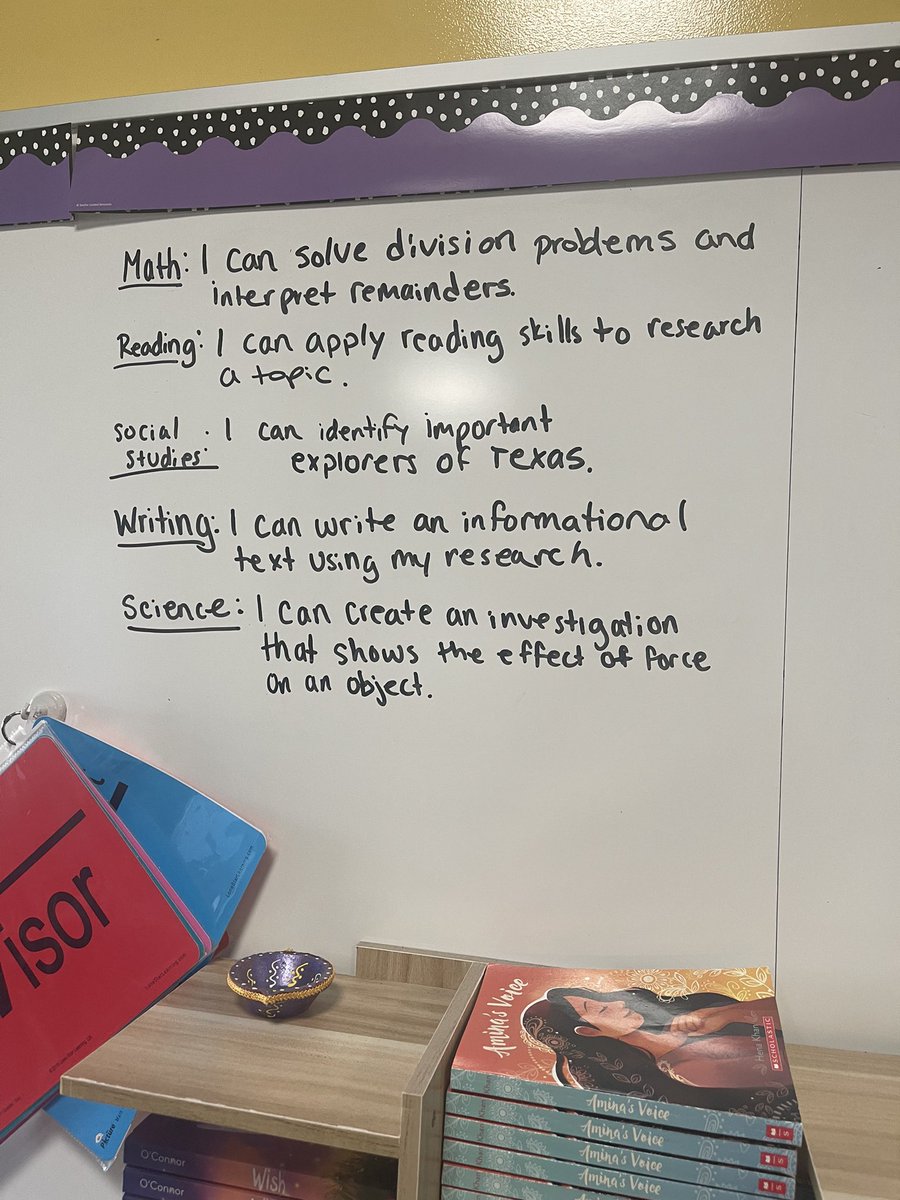 Math: I can solve division problems and
interpret remainders.
Reading: I can apply reading skills to research
a topic.
Social
Studies: I can identify important
explorers of Texas.
Writing: I can write an informational
text using my research.
Science: I can create an investigation
that shows the effect of force
on an object.
visor
Picture
Amina's Voice
Hena Khan
SCHOLASTIC
Amina's Voice
Amina's Voice
Amina's Voice
Amina's Voice
Amina's Voice
O'Connor
Wish
O'Connor